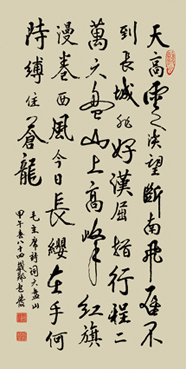 天高雲淡望斷南飛雁不
到長城非好漢屈指行程二
萬六盘山上高峰紅旗
漫卷西風今日長纓在手何
時縛住蒼龍
毛主席詩詞六盘山
甲午春八十四歲